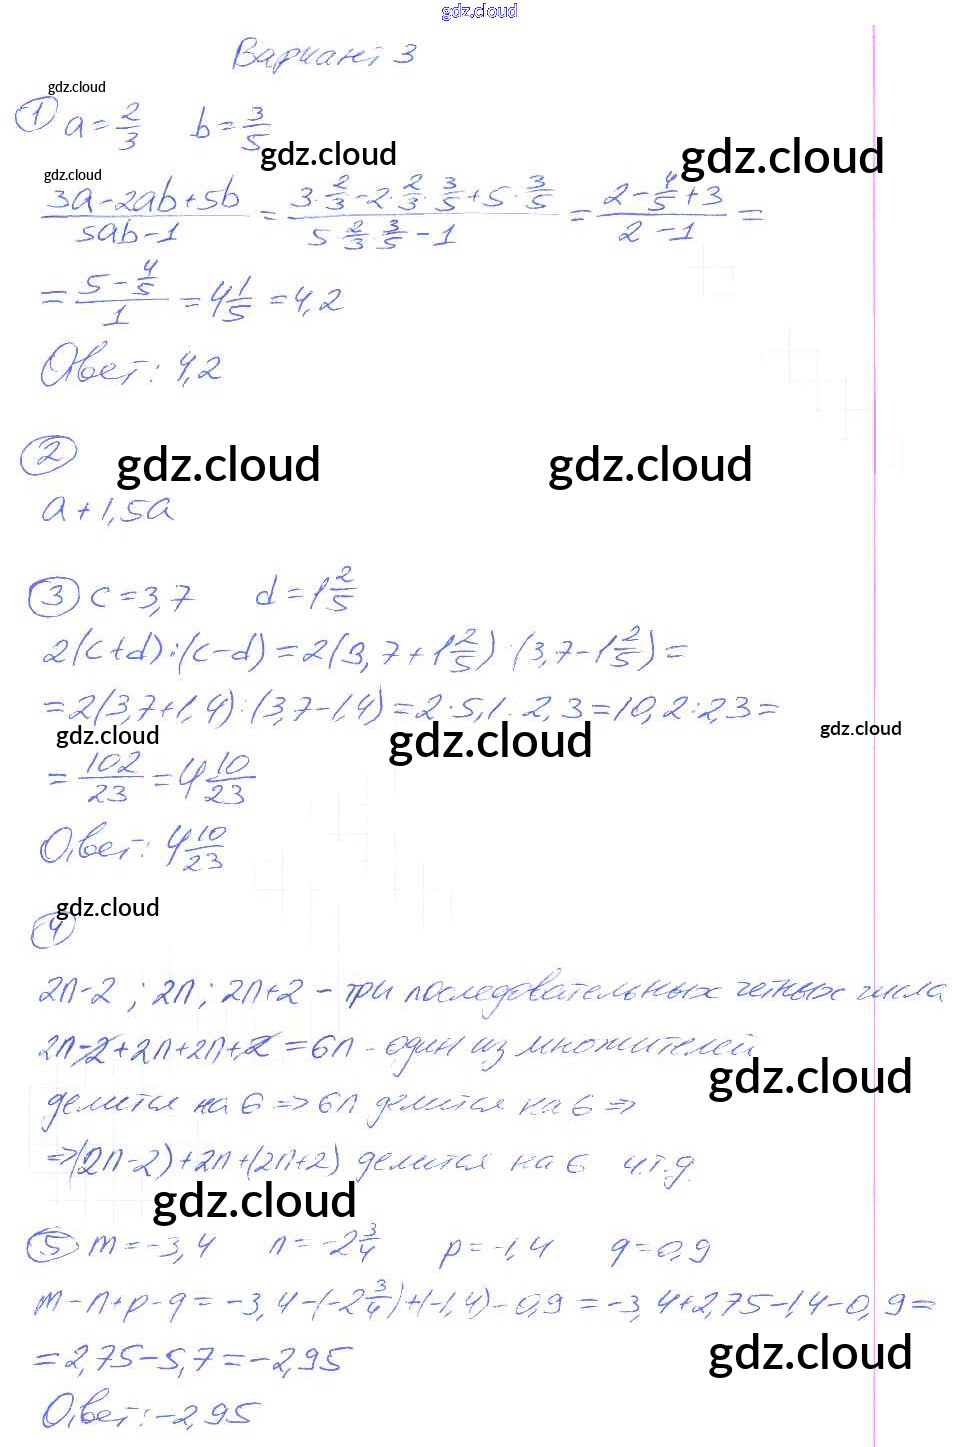 gdz.cloud
Вариант 3
gdz.cloud
① a = 2/3 b = 3/5
gdz.cloud gdz.cloud
gdz.cloud
(3a-2ab+5b)/(5ab-1) = (3·2/3-2·2/3·3/5+5·3/5)/(5 2/3·3/5-1) = (2-4/5+3)/(2-1) =
= (5-4/5)/1 = 4 1/5 = 4,2
Ответ: 4,2
②
gdz.cloud gdz.cloud
a + 1,5a
③ c = 3,7 d = 1 2/5
2(c+d):(c-d) = 2(3,7+1 2/5):(3,7-1 2/5) =
= 2(3,7+1,4):(3,7-1,4) = 2·5,1:2,3 = 10,2:2,3 =
gdz.cloud gdz.cloud gdz.cloud
= 102/23 = 4 10/23
Ответ: 4 10/23
gdz.cloud
④
2n-2; 2n; 2n+2 - три последовательных четных числа
2n-2+2n+2n+2 = 6n - один из множителей
gdz.cloud
делится на 6 => 6n делится на 6 =>
=> (2n-2)+2n+(2n+2) делится на 6 ч.т.д.
gdz.cloud
⑤ m = -3,4 n = -2 3/4 p = -1,4 q = 0,9
m-n+p-q = -3,4-(-2 3/4)+(-1,4)-0,9 = -3,4+2,75-1,4-0,9 =
gdz.cloud
= 2,75-5,7 = -2,95
Ответ: -2,95